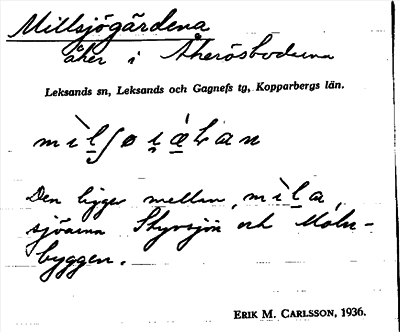 Millsjögärdena
åker i Åkerösbodarna
Leksands sn, Leksands och Gagnefs tg, Kopparbergs län.
Den ligger mellan
sjöarna Styrsjön och Moln-
byggen.
ERIK M. CARLSSON, 1936.